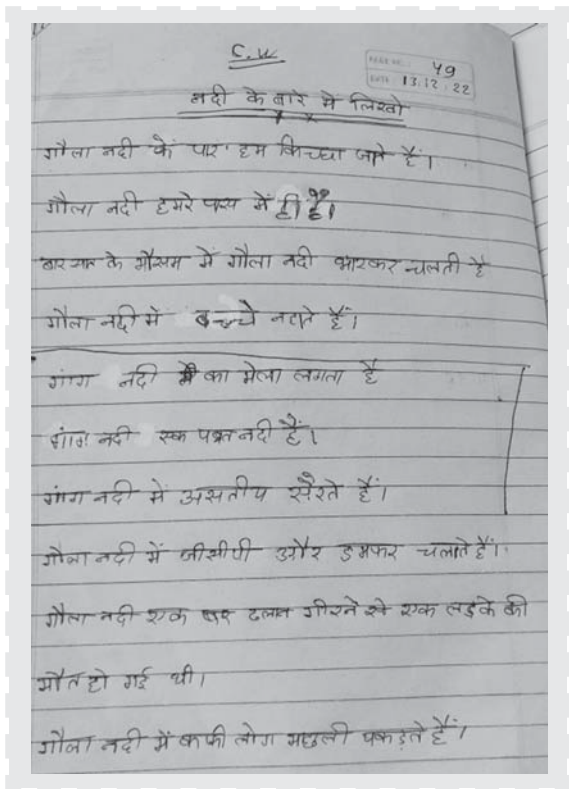 C.W
PAGE NO.: 49
DATE: 13.12.22
नदी के बारे में लिखो
गौला नदी के पार हम किच्छा जाते हैं।
गौला नदी हमरे पास में ही है।
बारसात के मौसम में गौला नदी भारकर चलती है
गौला नदी में बच्चे नहाते हैं।
गंगा नदी का मेला लगता है
गंगा नदी एक पवत्र नदी हैं।
गंगा नदी में असतीय सैरते हैं।
गौला नदी में जीसीपी और डमफर चलाते हैं।
गौला नदी एक बार ढलान गीरने से एक लड़के की
मौत हो गई थी।
गौला नदी में काफी लोग मछली पकड़ते हैं।